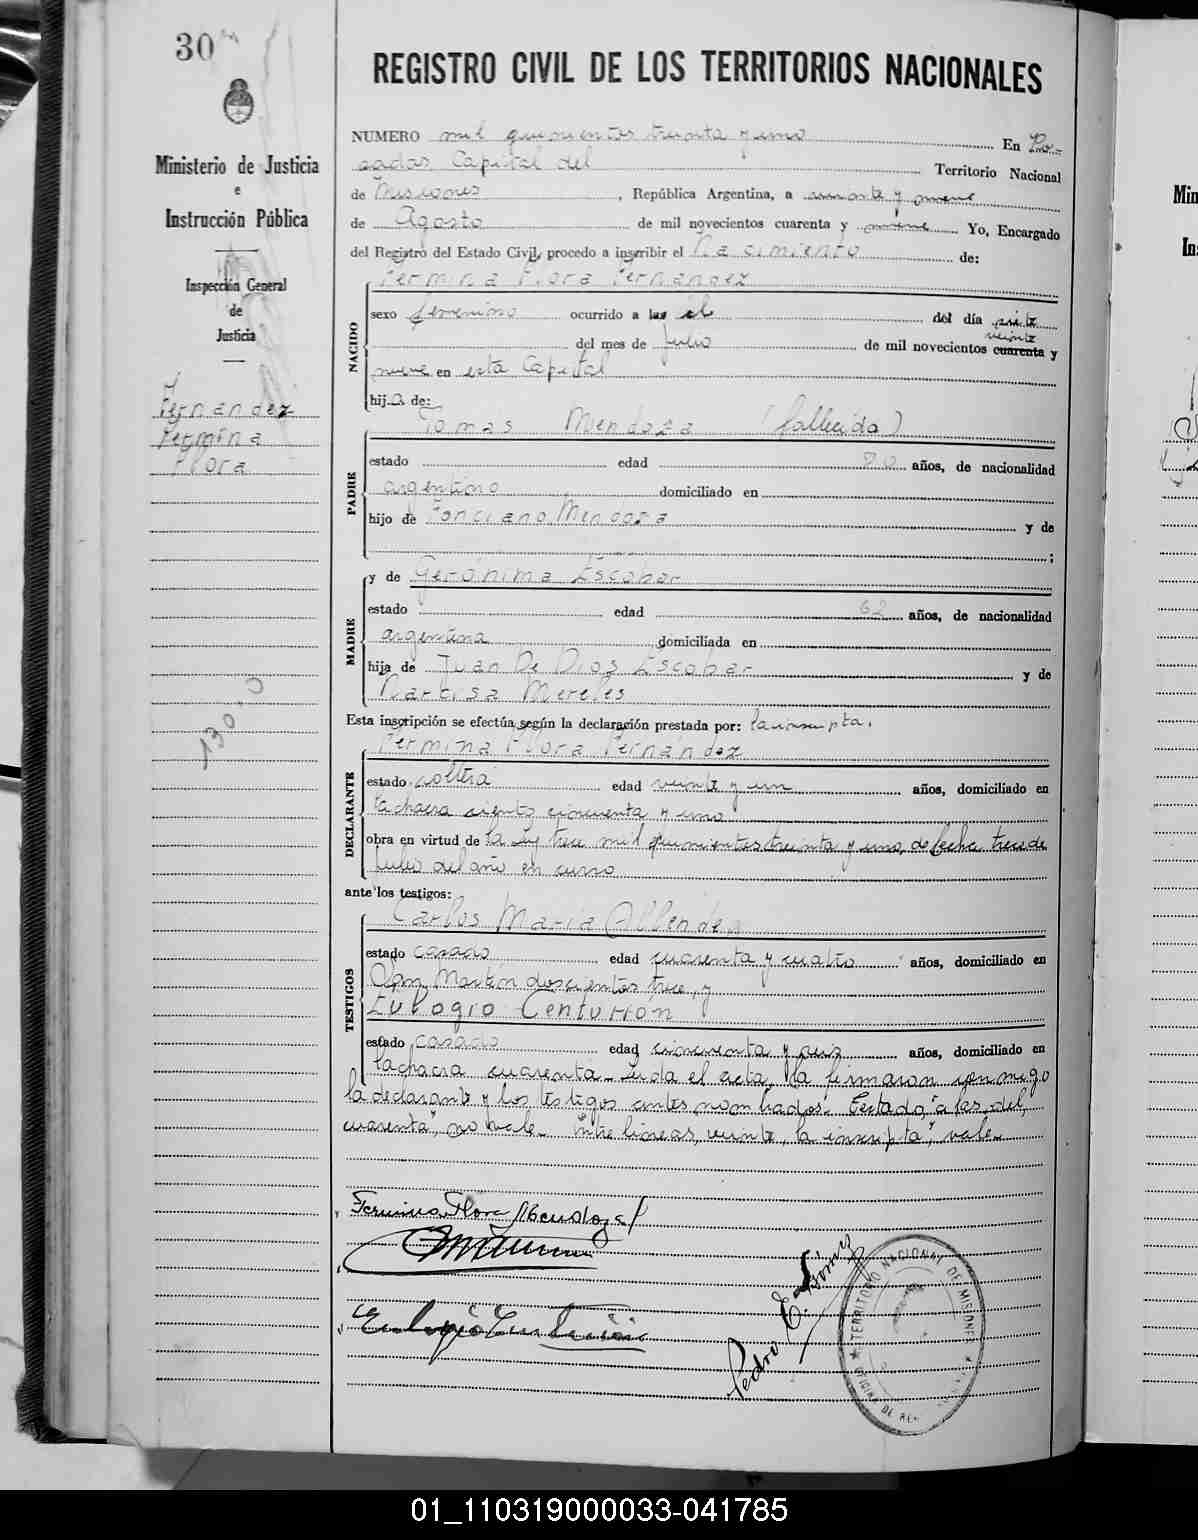 30
REGISTRO CIVIL DE LOS TERRITORIOS NACIONALES
Ministerio de Justicia
e
Instrucción Pública
Inspección General
de
Justicia
Fernandez
Fermina
Flora
130
NUMERO mil quinientos treinta y uno En Po-
sadas Capital del Territorio Nacional
de Misiones, República Argentina, a veinte y nueve
de Agosto de mil novecientos cuarenta y nueve Yo, Encargado
del Registro del Estado Civil, procedo a inscribir el Nacimiento de:
NACIDO
Fermina Flora Fernandez
sexo femenino ocurrido a las el del día siete
veinte
del mes de Julio de mil novecientos cuarenta y
nueve en esta Capital
hija de:
PADRE
Tomas Mendoza (fallecido)
estado edad años, de nacionalidad
argentino domiciliado en
hijo de Ponciano Mendoza y de
;
MADRE
y de Gerónima Escobar
estado edad 62 años, de nacionalidad
argentina domiciliada en
hija de Juan De Dios Escobar y de
Narcisa Mereles
Esta inscripción se efectúa según la declaración prestada por: la inscripta.
DECLARANTE
Fermina Flora Fernandez
estado soltera edad veinte y un años, domiciliado en
la chacra ciento cincuenta y uno
obra en virtud de la Ley trece mil quinientos treinta y uno, de fecha trece de
Julio del año en curso
ante los testigos:
TESTIGOS
Carlos María Allende
estado casado edad cuarenta y cuatro años, domiciliado en
San Martin doscientos trece, y
Eulogio Centurion
estado casado edad cincuenta y seis años, domiciliado en
la chacra cuarenta- Leida el acta, la firmaron conmigo
la declarante y los testigos antes nombrados. Testado "a las, del,
cuarenta", no vale- Entre lineas, veinte, la inscripta", vale-
Fermina Flora Mendoza
Eulogio Centurión
Pedro E.
TERRITORIO NACIONAL DE MISIONES
OFICINA DE
Min
In
01_110319000033-041785